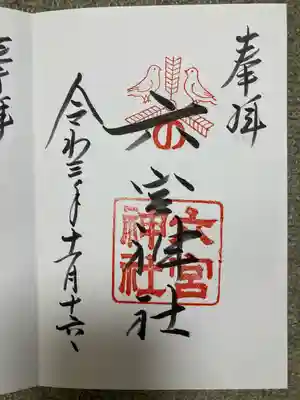 奉拝
六宮神社
六宮
神社
令和三年十一月十六日